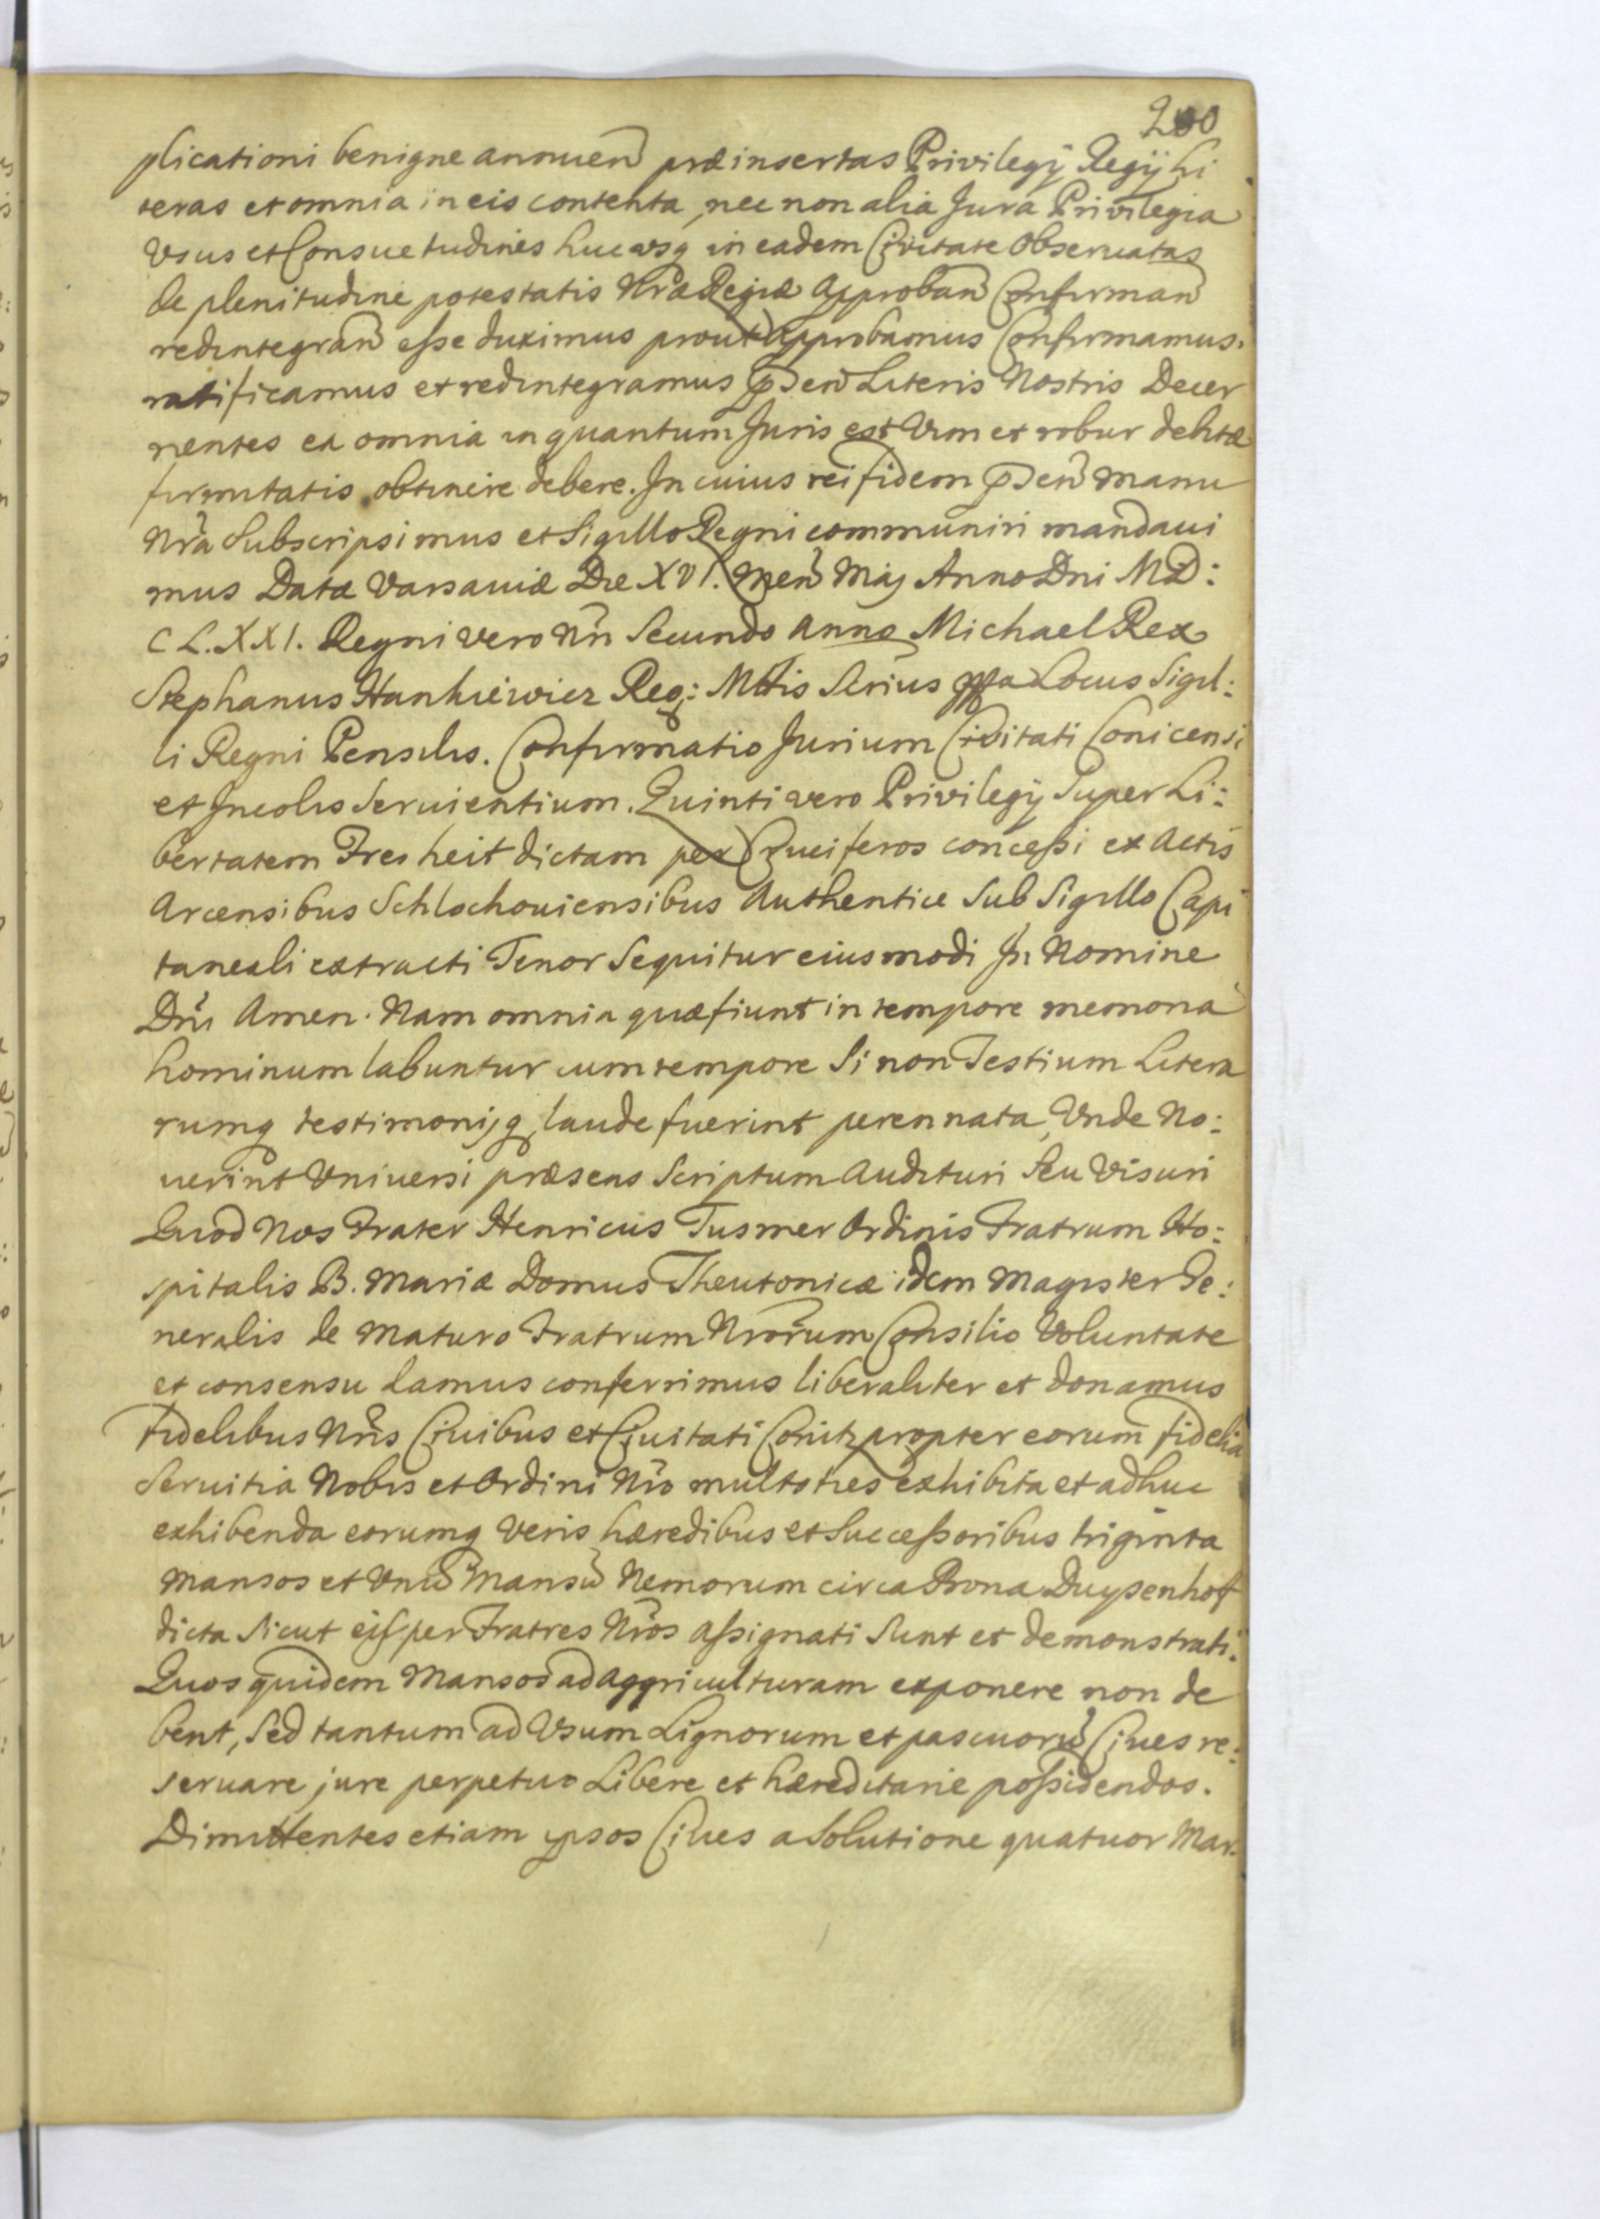 200
plicationi benigne annuen̄ præinsertas Privilegÿ Regÿ Li
teras et omnia in eis contenta, nec non alia Jura Privilegia
Usus et Consuetudines hucusq in eadem Civitate Observatas
de plenitudine potestatis Nr̄æ Regiæ Approban̄ Confirman̄
redintegran̄ esse duximus prout Approbamus Confirmamus.
ratificamus et redintegramus p̄sen̄ Literis Nostris Decer
nentes ea omnia in quantum Juris est Vim et robur debitæ
firmitatis obtinere debere. In cuius rei fidem p̄sen̄ manu
Nr̄a Subscripsimus et Sigillo Regni communiri mandavi
mus Datæ Varsaviæ Die XVI. Men̄ Maÿ Anno Dni MD:
CLXXI. Regni vero Nr̄i Secundo Anno Michael Rex
Stephanus Hankiewicz Reg: Mttis Scrius mppa Locus Sigil:
li Regni Pensilis. Confirmatio Jurium Civitati Conicensi
et Incolis Servientium. Quinti vero Privilegÿ Super Li:
bertatem Fresheit dictam per Cruciferos concessi ex Actis
Arcensibus Schlochoviensibus Authentice Sub Sigillo Capi
taneali extracti Tenor Sequitur eiusmodi In Nomine
Dn̄i Amen. Nam omnia quæ fiunt in tempore memoria
hominum labuntur cum tempore Si non Testium Litera
rumq testimonijq, laude fuerint perennata, Unde No:
uerint Universi præsens Scriptum Audituri Seu Visuri
Quod Nos Frater Henricus Tusmer Ordinis Fratrum Ho:
spitalis B. Mariæ Domus Theutonicæ idem Magister Ge:
neralis de Maturo Fratrum Nr̄orum Consilio Voluntate
et consensu Damus conferrimus liberaliter et donamus
Fidelibus Nr̄is Civibus et Civitati Conitz propter eorum fidelia
Servitia Nobis et Ordini Nr̄o multoties exhibita et adhuc
exhibenda eorumq Veris hæredibus et Successoribus triginta
Mansos et Unū Mansū Nemorum circa Bona Duysenhoff
dicta Sicut eis per Fratres Nr̄os assignati Sunt et demonstrati.
Quos quidem Mansos ad Aggriculturam exponere non de
bent, Sed tantum ad Usum Lignorum et pascuorū Cives re:
servare jure perpetuo Libere et hæreditarie possidendos.
Dimittentes etiam ipsos Cives a Solutione quatuor Mar-